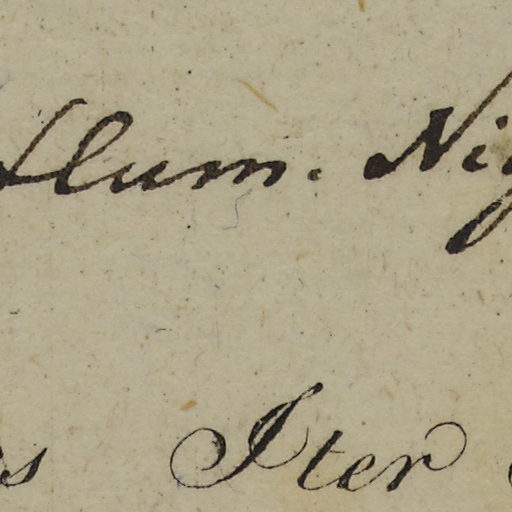 llum. Nig
s Iter